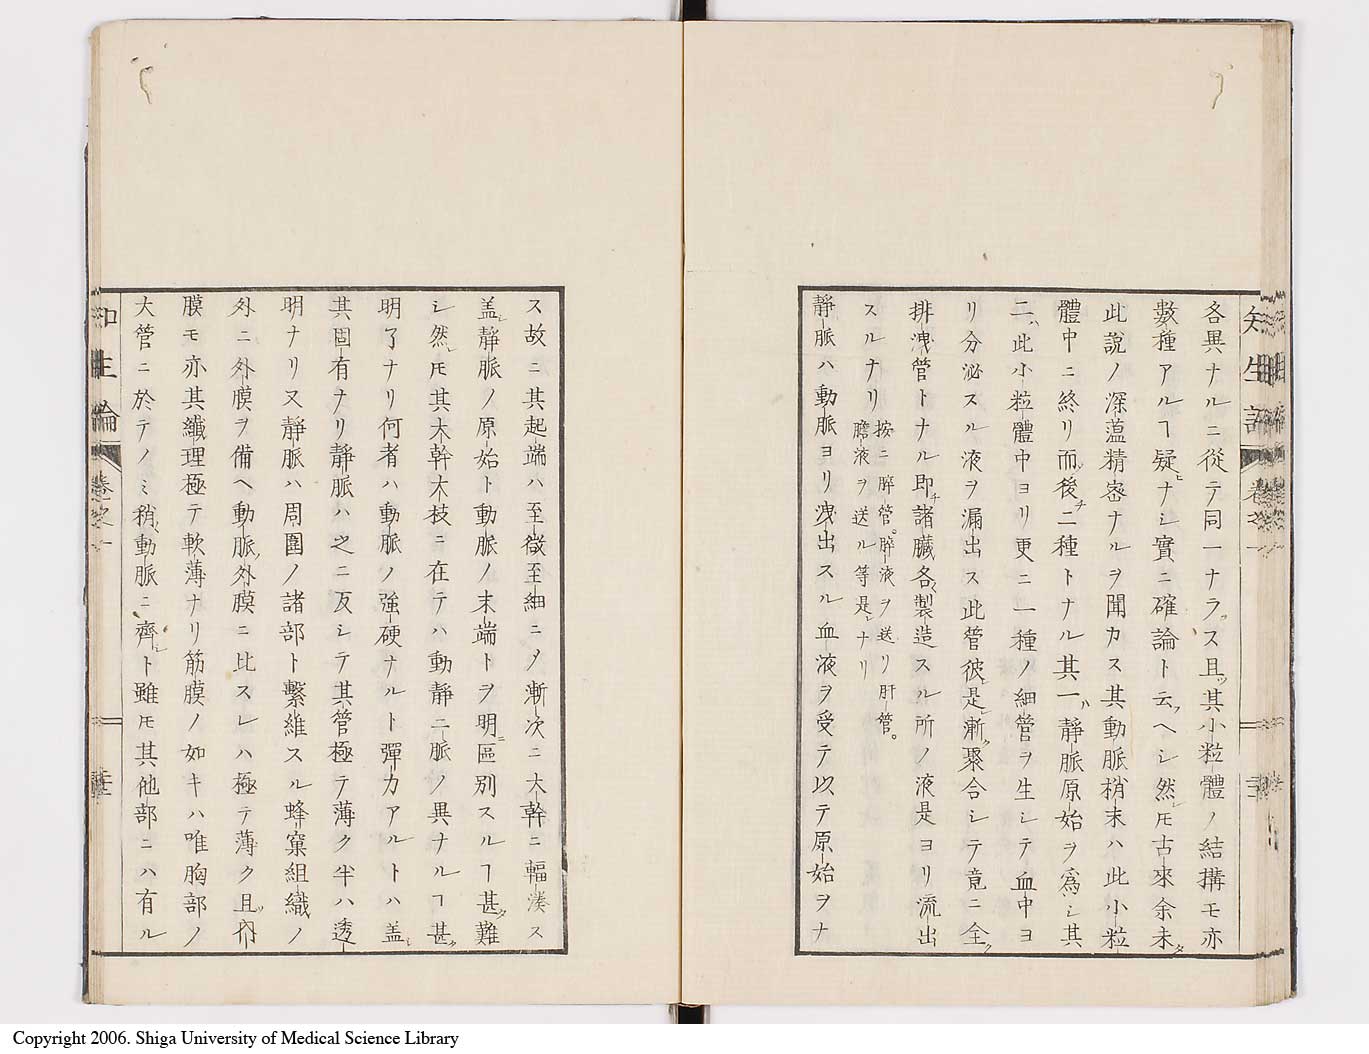 各異ナルニ從テ同一ナラス且ツ其小粒體ノ結搆モ亦
數種アルヿ疑ヒナシ實ニ確論ト云フヘシ然レ𪜈古來余未タ
此說ノ深薀精密ナルヲ聞カス其動脈梢末ハ此小粒
體中ニ終リ而ツ後チ二種トナル其一ハ靜脈原始ヲ爲シ其
二ハ此小粒體中ヨリ更ニ一種ノ細管ヲ生シテ血中ヨ
リ分泌スル液ヲ漏出ス此管彼レ是レ漸ク聚合シテ竟ニ全ク
排洩管トナル即チ諸臟各〻製造スル所ノ液是ヨリ流出
スルナリ 按ニ膵管。膵液ヲ送リ肝管。
膽液ヲ送ル等是レナリ
靜脈ハ動脈ヨリ洩出スル血液ヲ受テ以テ原始ヲナ
ス故ニ其起端ハ至微至細ニヿ漸次ニ大幹ニ輻湊ス
盖シ靜脈ノ原始ト動脈ノ末端トヲ明ニ區別スルヿ甚タ難
シ然レ𪜈其大幹大枝ニ在テハ動靜二脈ノ異ナルヿ甚タ
明了ナリ何者ハ動脈ノ強硬ナルト彈力アルトハ盖シ
其固有ナリ靜脈ハ之ニ反シテ其管極テ薄ク半ハ透
明ナリ又靜脈ハ周圍ノ諸部ト繫維スル蜂窠組織ノ
外ニ外膜ヲ備ヘ動脈ノ外膜ニ比スレハ極テ薄ク且ツ內
膜モ亦其纖理極テ軟薄ナリ筋膜ノ如キハ唯胸部ノ
大管ニ於テノミ稍〻動脈ニ齊シト雖𪜈其他部ニハ有ル
知生論 卷之一
Copyright 2006. Shiga University of Medical Science Library